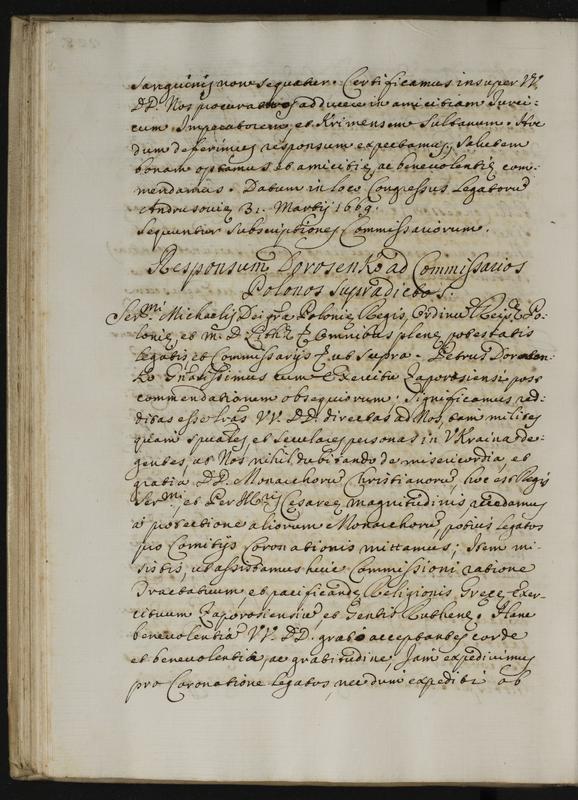 sanguinis non sequatur. Certificamus insuper VV.
DD. Nos procuraturos adducere in amicitiam Turci-
cum Imperatorem, et Krimensem Sultanum. Hæc
dum deferimus responsum expectamus, salutem
bonam optamus et amicitiæ, ac benevolentiæ com-
mendamus. Datum in loco Congressus Legatorũ
Andrusoviæ 31. Martij 1669.
Sequuntur subscriptiones Commissariorum.
Responsum Dorosenko ad Commissarios
Polonos supradictos.
Ser.mi Michaelis Dei gr̃a Poloniæ Regis, Ordinũ Reip. Po-
loniæ, et M. D. Lith. Omnibus plenæ potestatis
legatis et Commissarijs ut supra. Petrus Dorosen-
ko Gñalissimus cum Exercitu Zaporosiensi post
commendationem obsequiorum. Significamus red-
ditas esse Lr̃as VV. DD. directas ad Nos, tam milites
quam spirᵗales et seculares personas in Vkraina de-
gentes, ut Nos nihil dubitando de misericordia, et
gratia DD. Monarchorũ Christianorũ, hoc est Regis
Ser.mi, et Per Ill.ris Cesareæ magnitudinis recedamus
a protectione aliorum Monarchorũ, potius legatos
pro Comitijs Coronationis mittamus; Item mi-
sistis, ut assistamus huic Commissioni ratione
Tractatuum et pacificandæ Religionis Grecæ Exer-
cituum Zaporosiensiũ, et Gentis Ruthenæ. Hanc
benevolentiã VV. DD. grato acceptantes corde
et benevolentia ac gratitudine Jam expedivimus
pro Coronatione legatos, necdum expediti ob